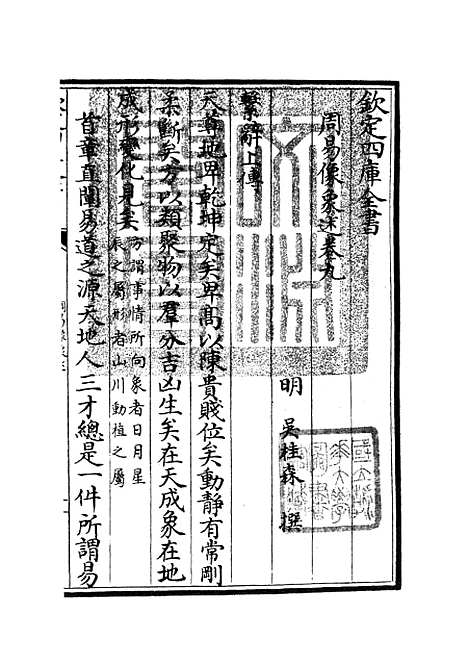 欽定四庫全書
周易像象述卷九
明 吳桂森 撰
繫辭上傳
天尊地卑乾坤定矣卑高以陳貴賤位矣動靜有常剛
柔斷矣方以類聚物以羣分吉凶生矣在天成象在地
成形變化見矣方謂事情所向象者日月星
辰之屬形者山川動植之屬
首章直闡易道之源天地人三才總是一件所謂易